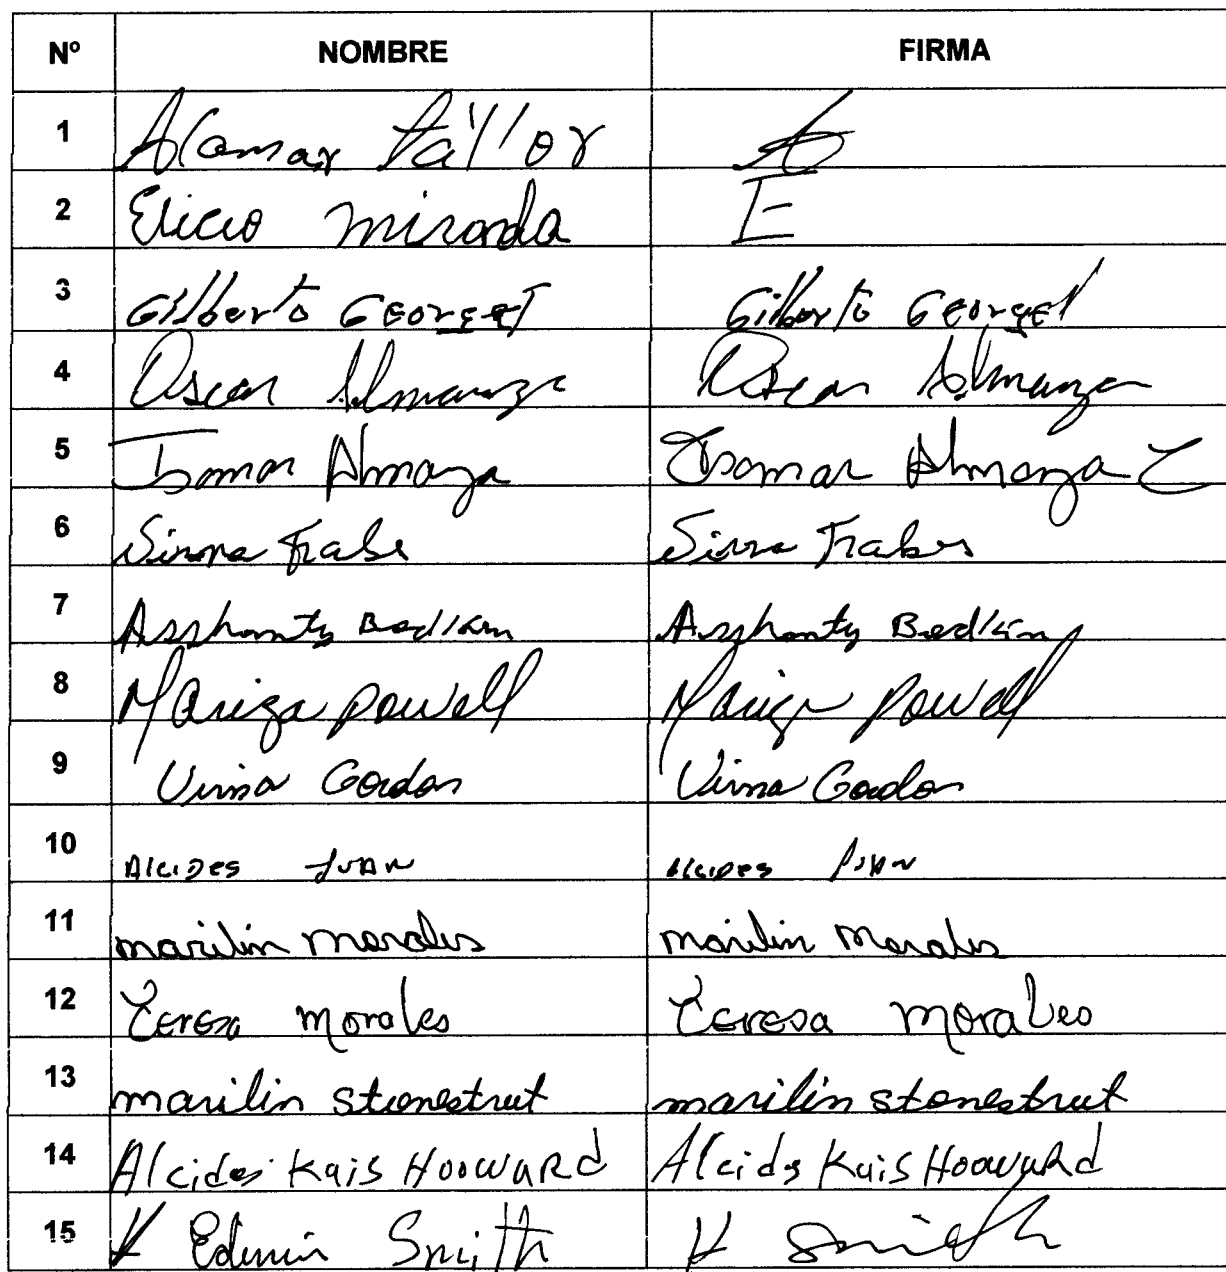 Nº NOMBRE FIRMA
1 Alamar Taylor
2 Elicio miranda E
3 Gilberto GEorgeT Gilberto GEorgeT
4 Oscar Almanza Oscar Almanza
5 Isamar Almanza Isamar Almanza C
6 Sirma
7 Asshanty Asshanty
8 Mariza powell Mariza Powell
9 Virna Gordon Virna Gordon
10 Alcides JUAN Alcides JUAN
11 marilin morales marilin morales
12 Teresa morales Teresa morales
13 marilin stonestreet marilin stonestreet
14 Alcides Kais HoowaRd Alcides Kais HoowaRd
15 Edwin Smith Smith